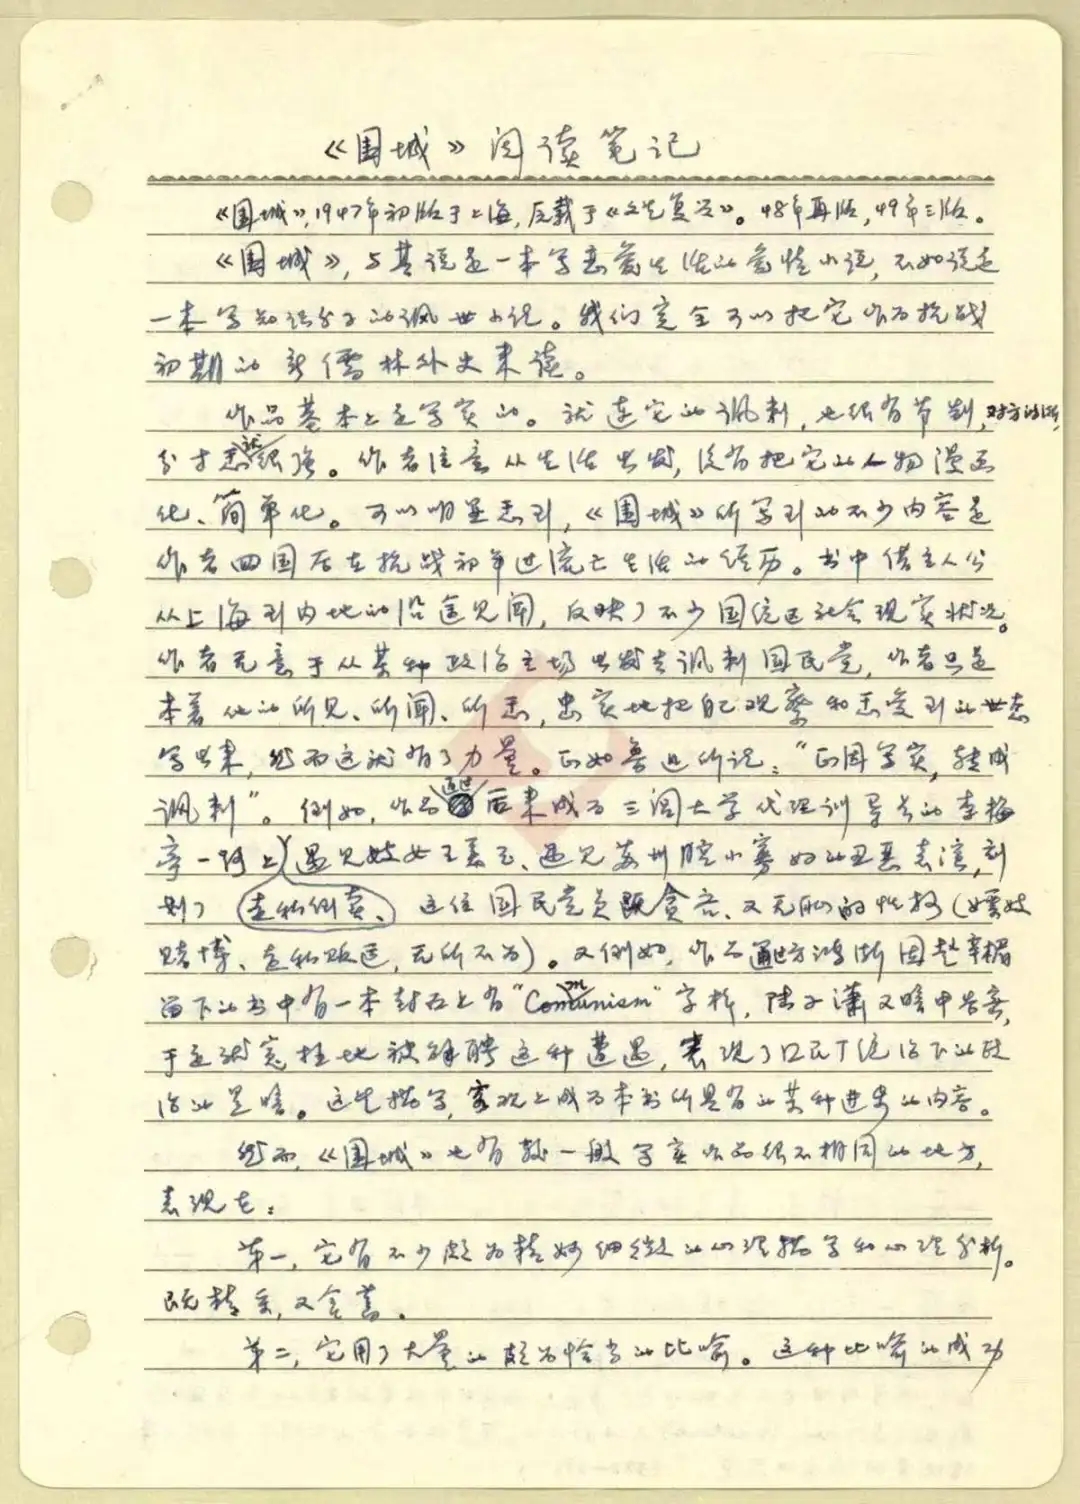 《围城》阅读笔记
《围城》,1947年初版于上海,反载于《文艺复兴》。48年再版,49年三版。
《围城》,与其说是一本写恋爱生活的爱情小说,不如说是
一本写知识分子的讽世小说。我们完全可以把它作为抗战
初期的新儒林外史来读。
作品基本上是写实的。就连它的讽刺,也很有节制,
分寸感很强。作者注意从生活出发,没有把它的人物漫画
化、简单化。可以明显感到,《围城》所写到的不少内容是
作者回国后在抗战初年过流亡生活的经历。书中借主人公
从上海到内地的沿途见闻,反映了不少国统区社会现实状况。
作者无意于从某种政治立场出发去讽刺国民党,作者只是
本着他的所见、所闻、所感,忠实地把自己观察和感受到的世态
写出来,然而这就有了力量。正如鲁迅所说:“正因写实,转成
讽刺”。例如,作品通过后来成为三闾大学代理训导长的李梅
亭一路上走私倒卖、遇见妓女王美玉、遇见苏州腔小寡妇的丑恶表演,刻
划了这位国民党员既贪吝、又无耻的性格(嫖妓
赌博、走私贩运,无所不为)。又例如,作品通过方鸿渐因赵辛楣
留下的书中有一本封面上有“Communism”字样,陆子潇又暗中告密,
于是就冤枉地被解聘这种遭遇,表现了囗民丁统治下的政
治的黑暗。这些描写,客观上成为本书所具有的某种进步的内容。
然而,《围城》也有教一般写实作品很不相同的地方,
表现在:
第一,它有不少颇为精妙细微的心理描写和心理分析。
既精彩,又含蓄。
第二,它用了大量的颇为恰当的比喻。这种比喻的成功